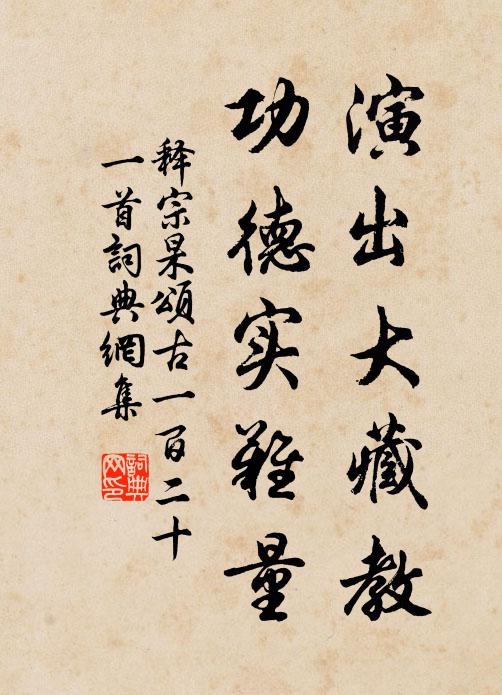 演出大藏教
功德实难量
释宗杲頌古一百二十
一首詞典網集
詞典
网印